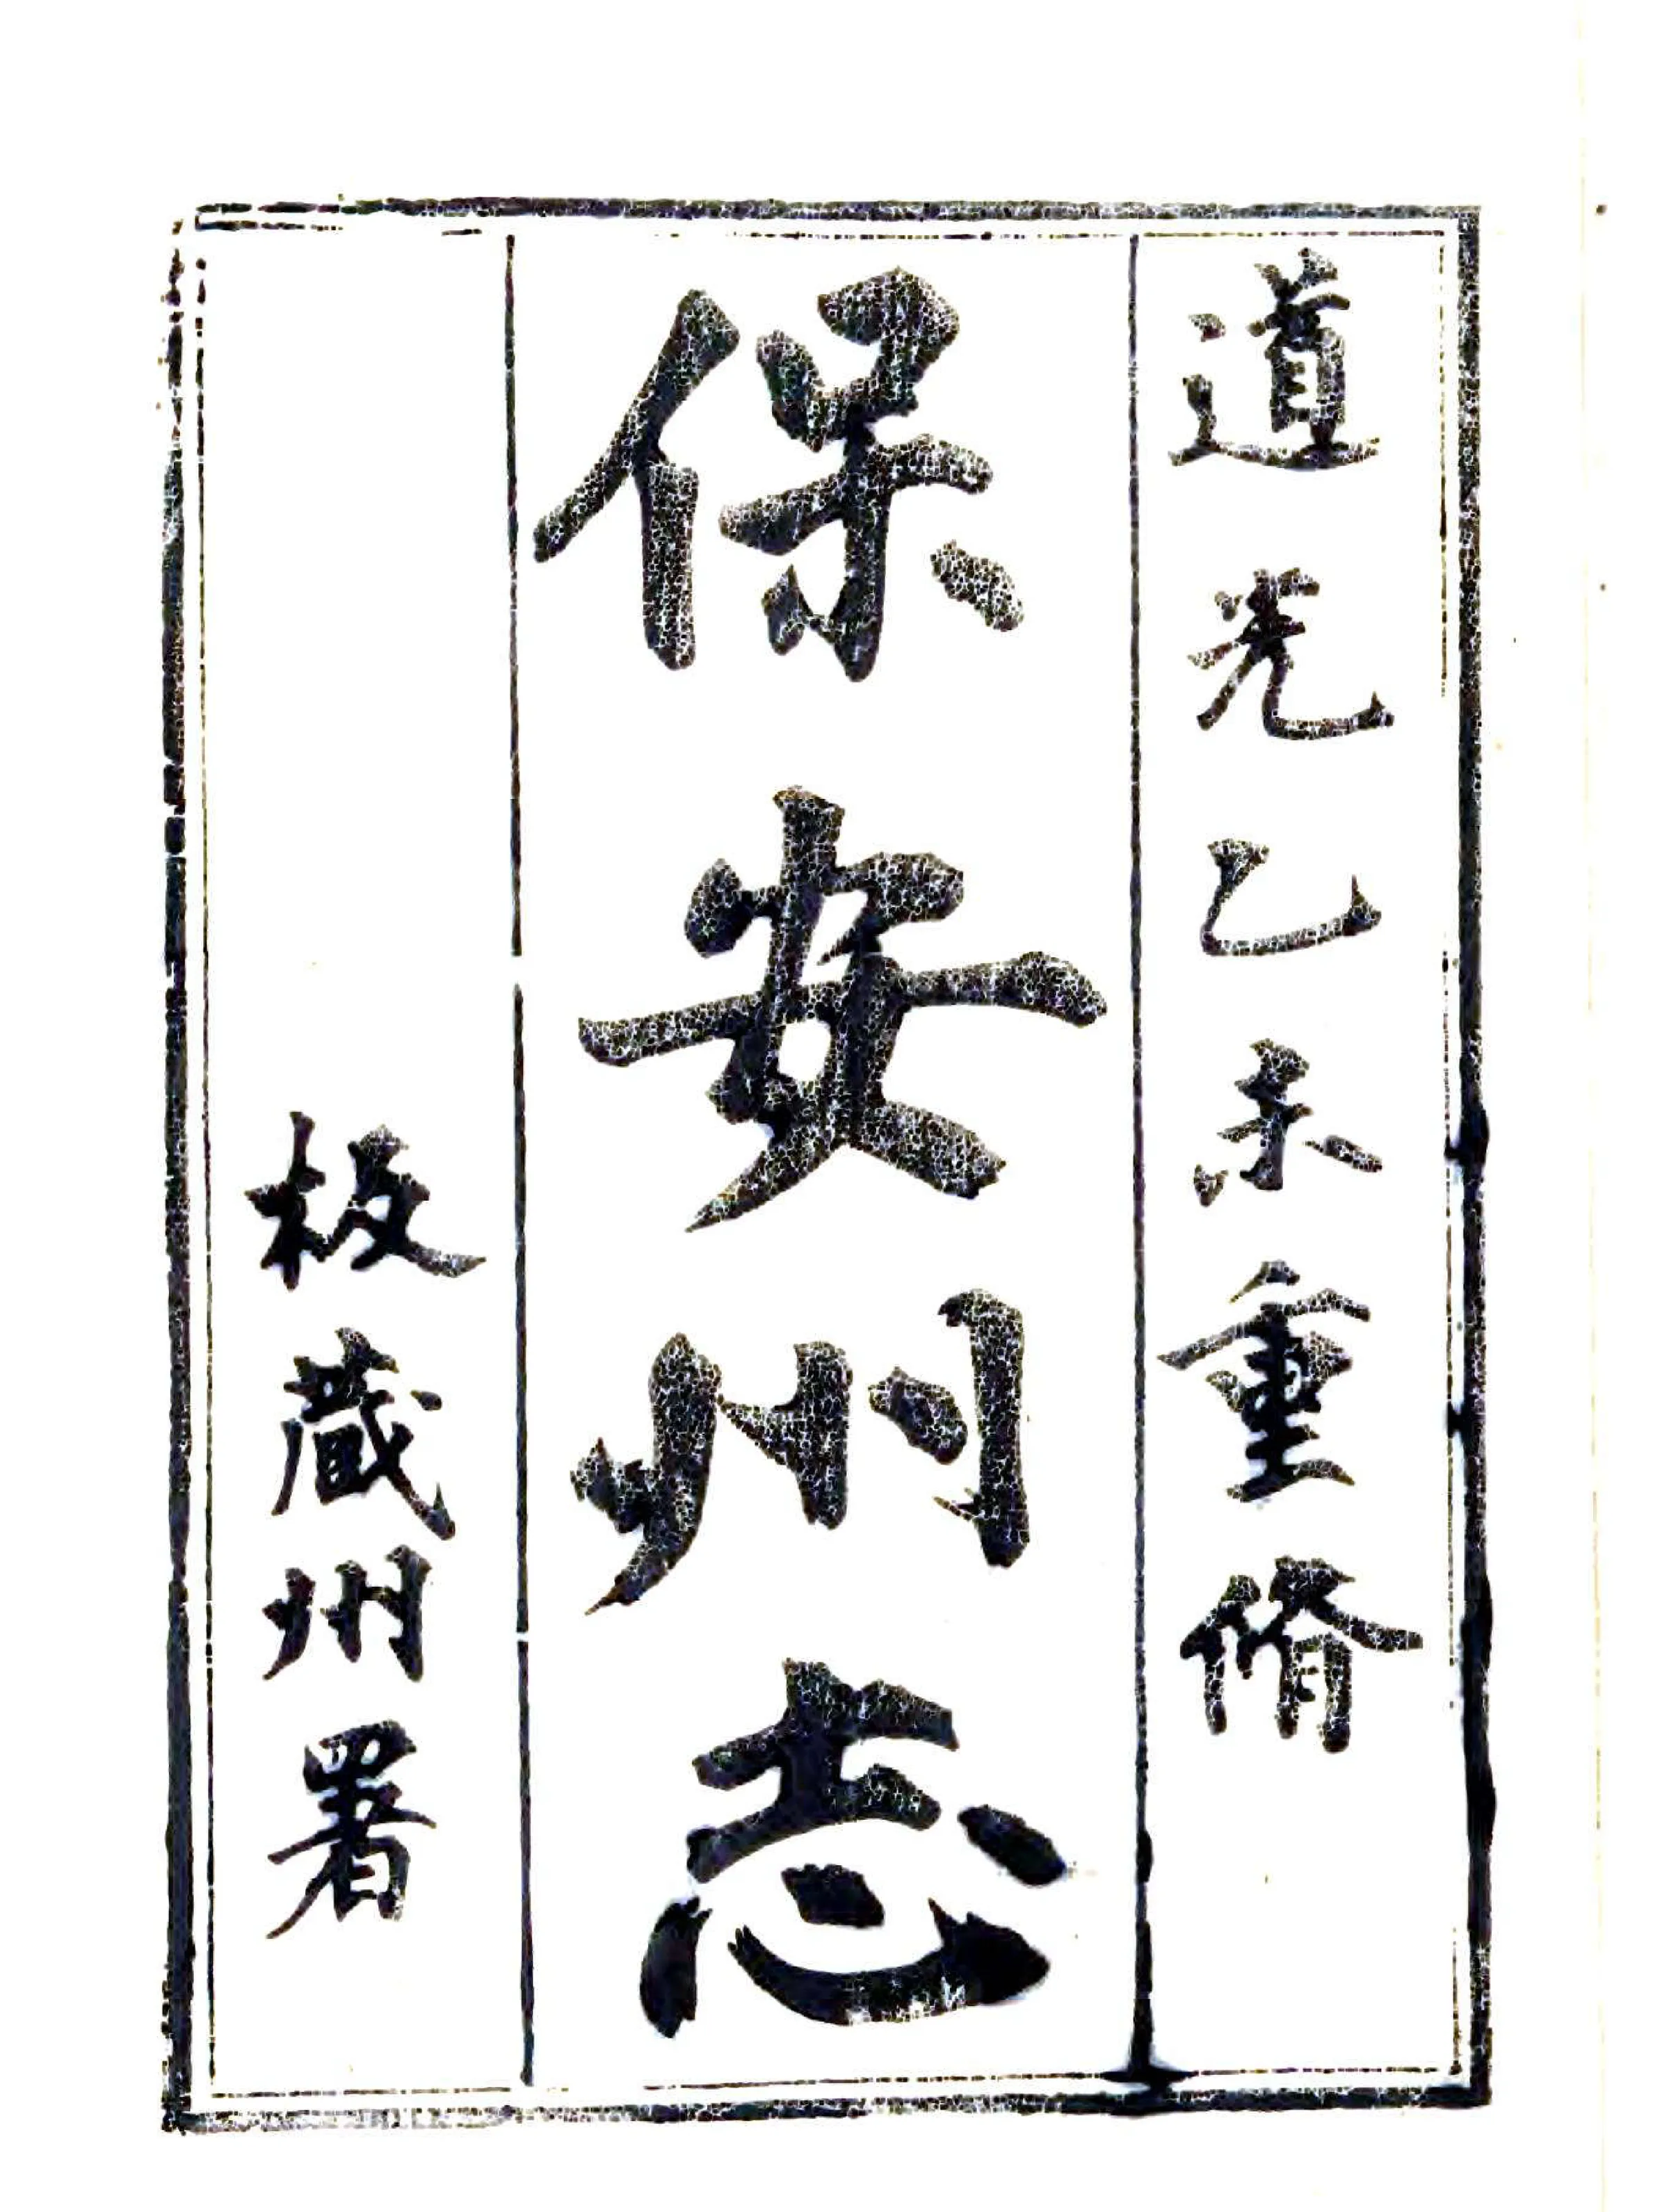 道光乙未重脩
保安州志
板藏州署